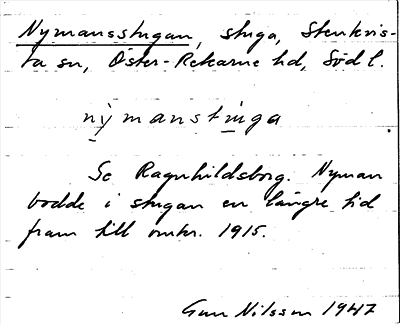 Nymansstugan, stuga, Stenkvis-
ta sn, Öster-Rekarne hd, Södl.
nỳmanstu̲ga
Se Ragnhildsborg. Nyman
bodde i stugan en längre tid
fram till omkr. 1915.
Gun Nilsson 1947